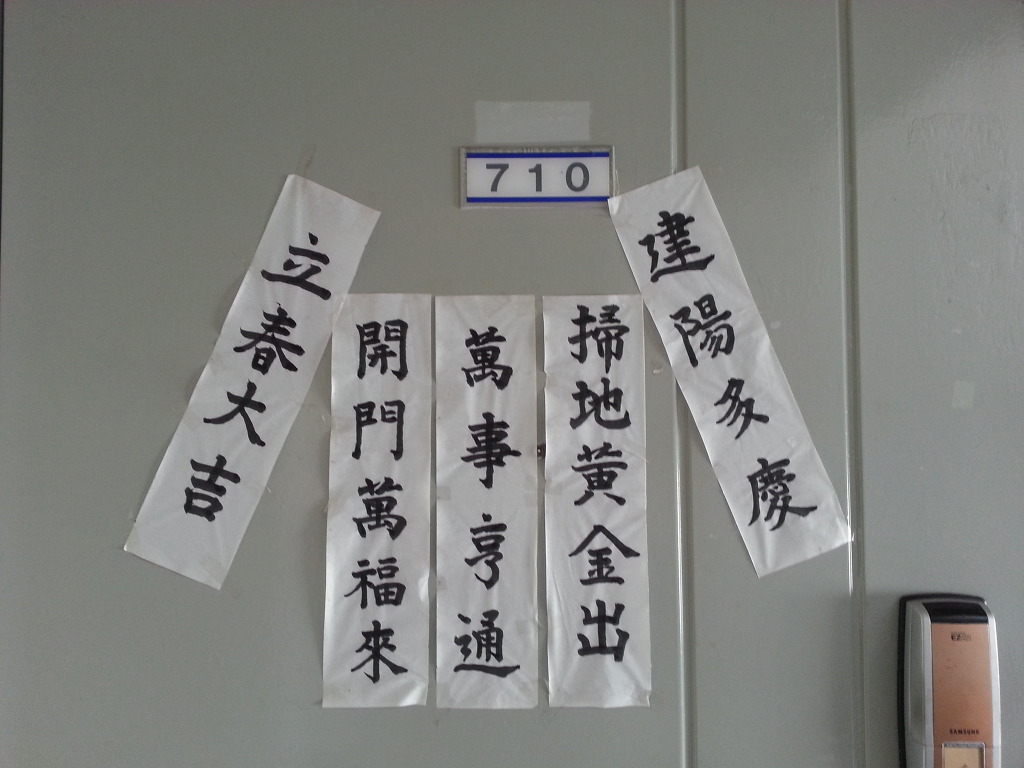 710
立春大吉
建陽多慶
掃地黃金出
萬事亨通
開門萬福來
SAMSUNG